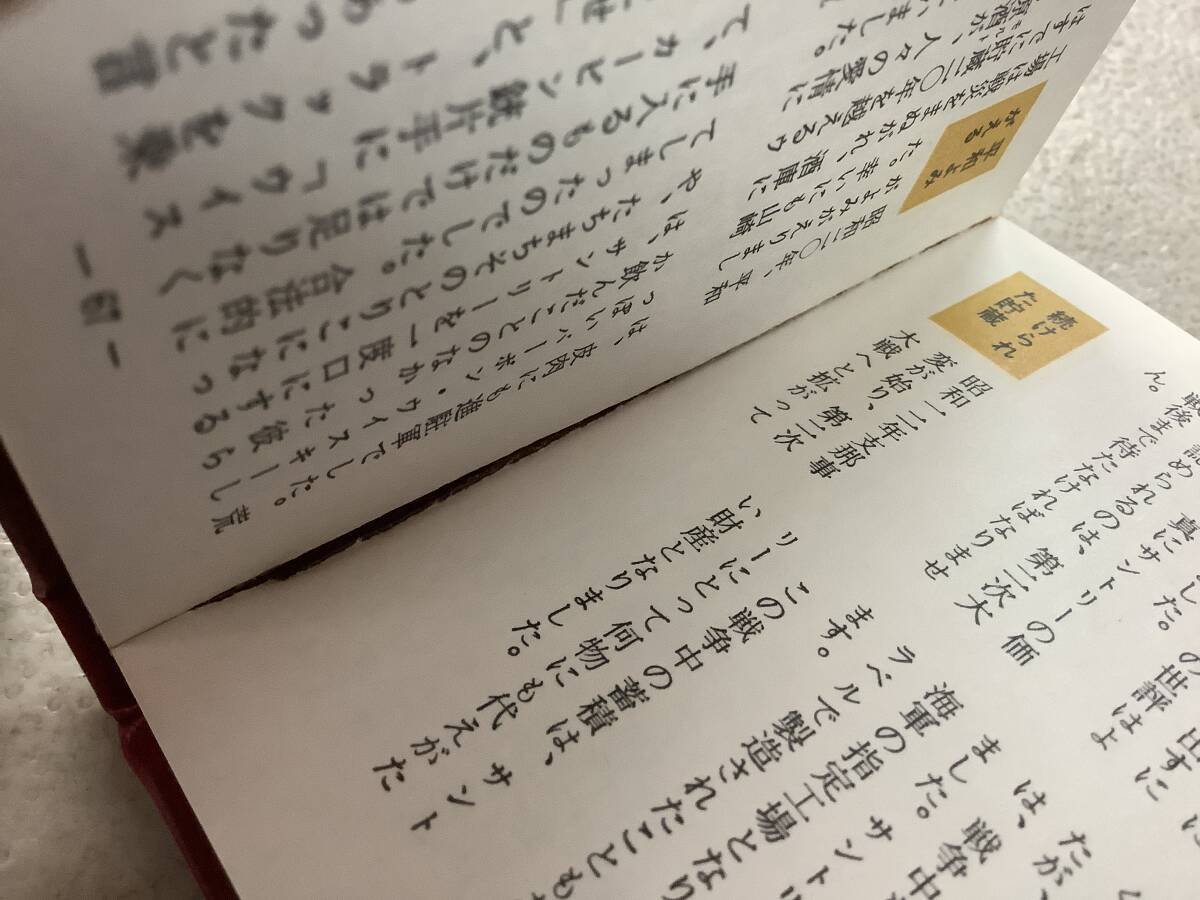 出ずに
の世評はよ
した。
真にサントリーの価
められるのは、第二次大
後まで待たなければなりませ
ん。
続けられ
た貯蔵
昭和一二年支那事
変が始り、第二次
大戦へと拡がって
だが、
は、戦争中
ました。サント
海軍の指定工場となり
ラベルで製造されたことも
ます。
この戦争中の蓄積は、サント
リーにとって何物にも代えがた
い財産となりました。
平和よみ
がえる
昭和二〇年、平和
がよみがえりまし
た。幸いにも山崎
工場は戦災をまぬがれ、酒庫に
はすでに貯蔵二〇年を越えるウ
原酒が、人々の愛情に
いました。
は、皮肉にも進駐軍でした。荒
っぽいバーボン・ウイスキーし
か飲んだことのなかった彼ら
は、サントリーを一度口にする
や、たちまちそのとりこになっ
てしまったのでした。合法的に
手に入るものだけでは足りなく
て、カービン銃片手に「ウイス
と、トラックを乗
あったと言